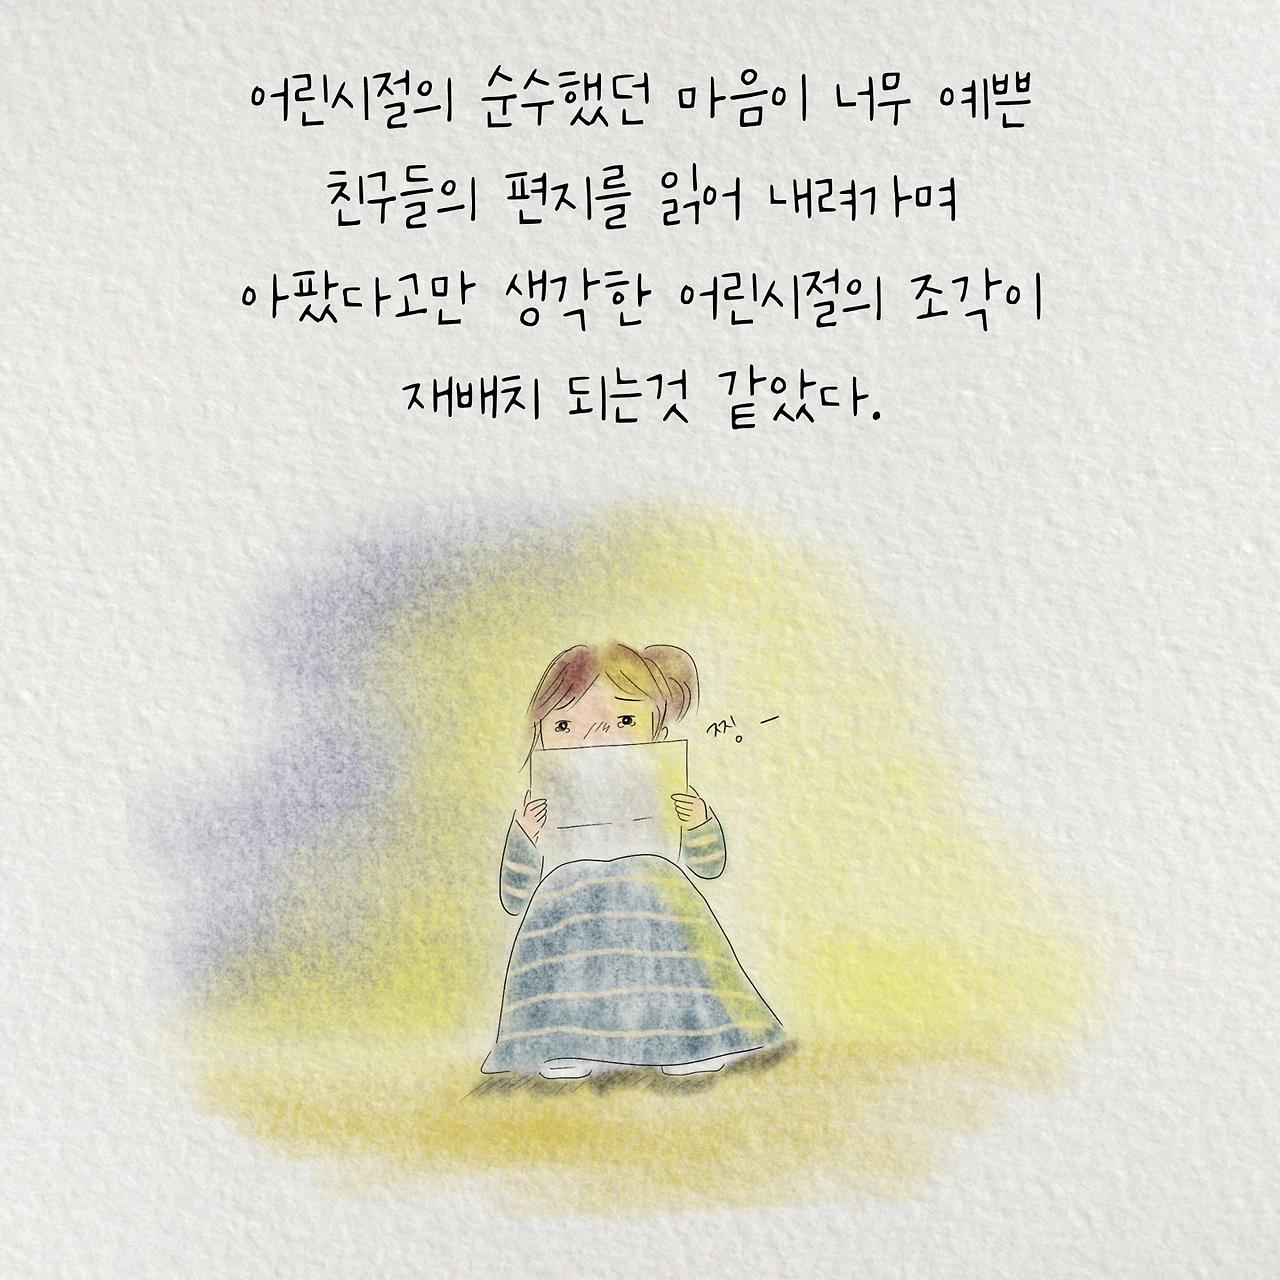 어린시절의 순수했던 마음이 너무 예쁜
친구들의 편지를 읽어 내려가며
아팠다고만 생각한 어린시절의 조각이
재배치 되는것 같았다.
찡 -